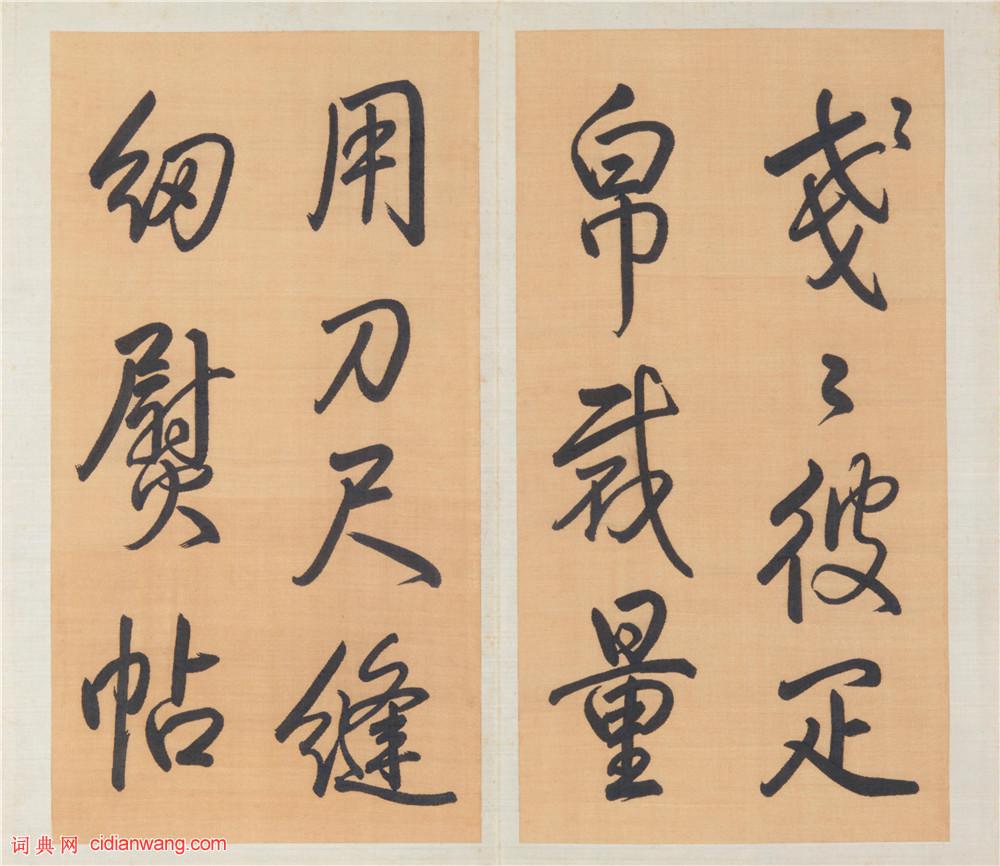 戔〻彼疋
帛裁量
用刀尺縫
紉熨帖
词典网 cidianwang.com